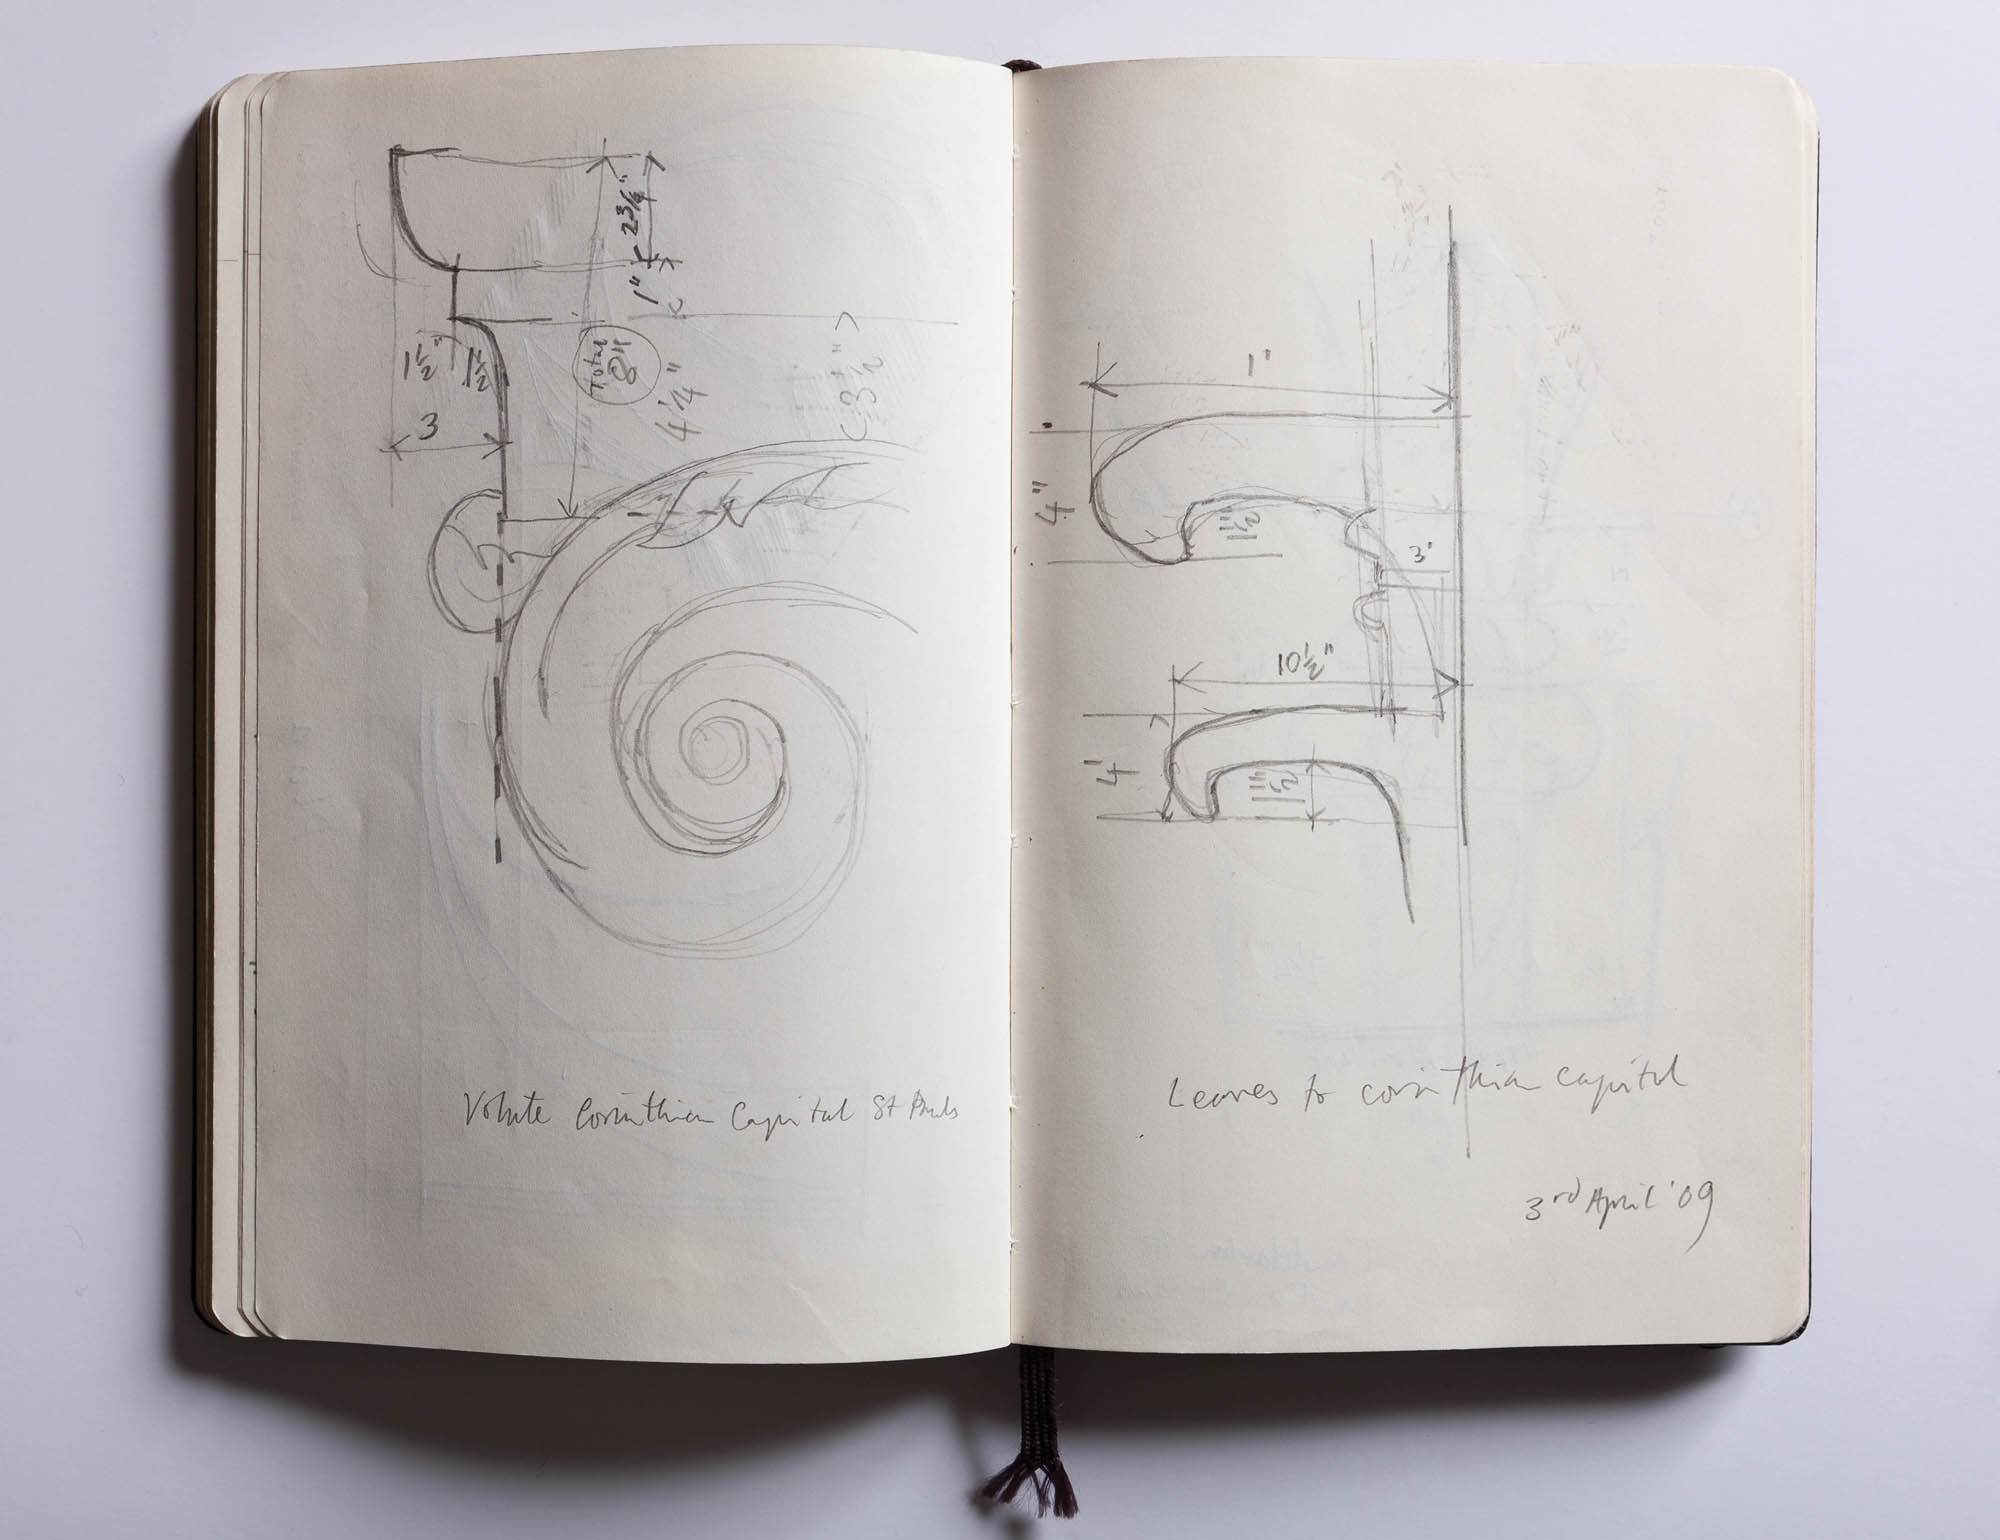 2¾"
1"
1½" 1½
Total
8"
4¼"
3
3½"
Volute Corinthian Capital St Pauls
1'
4"
1½"
3"
10½"
4"
1½"
Leaves to corinthian capital
3rd April '09